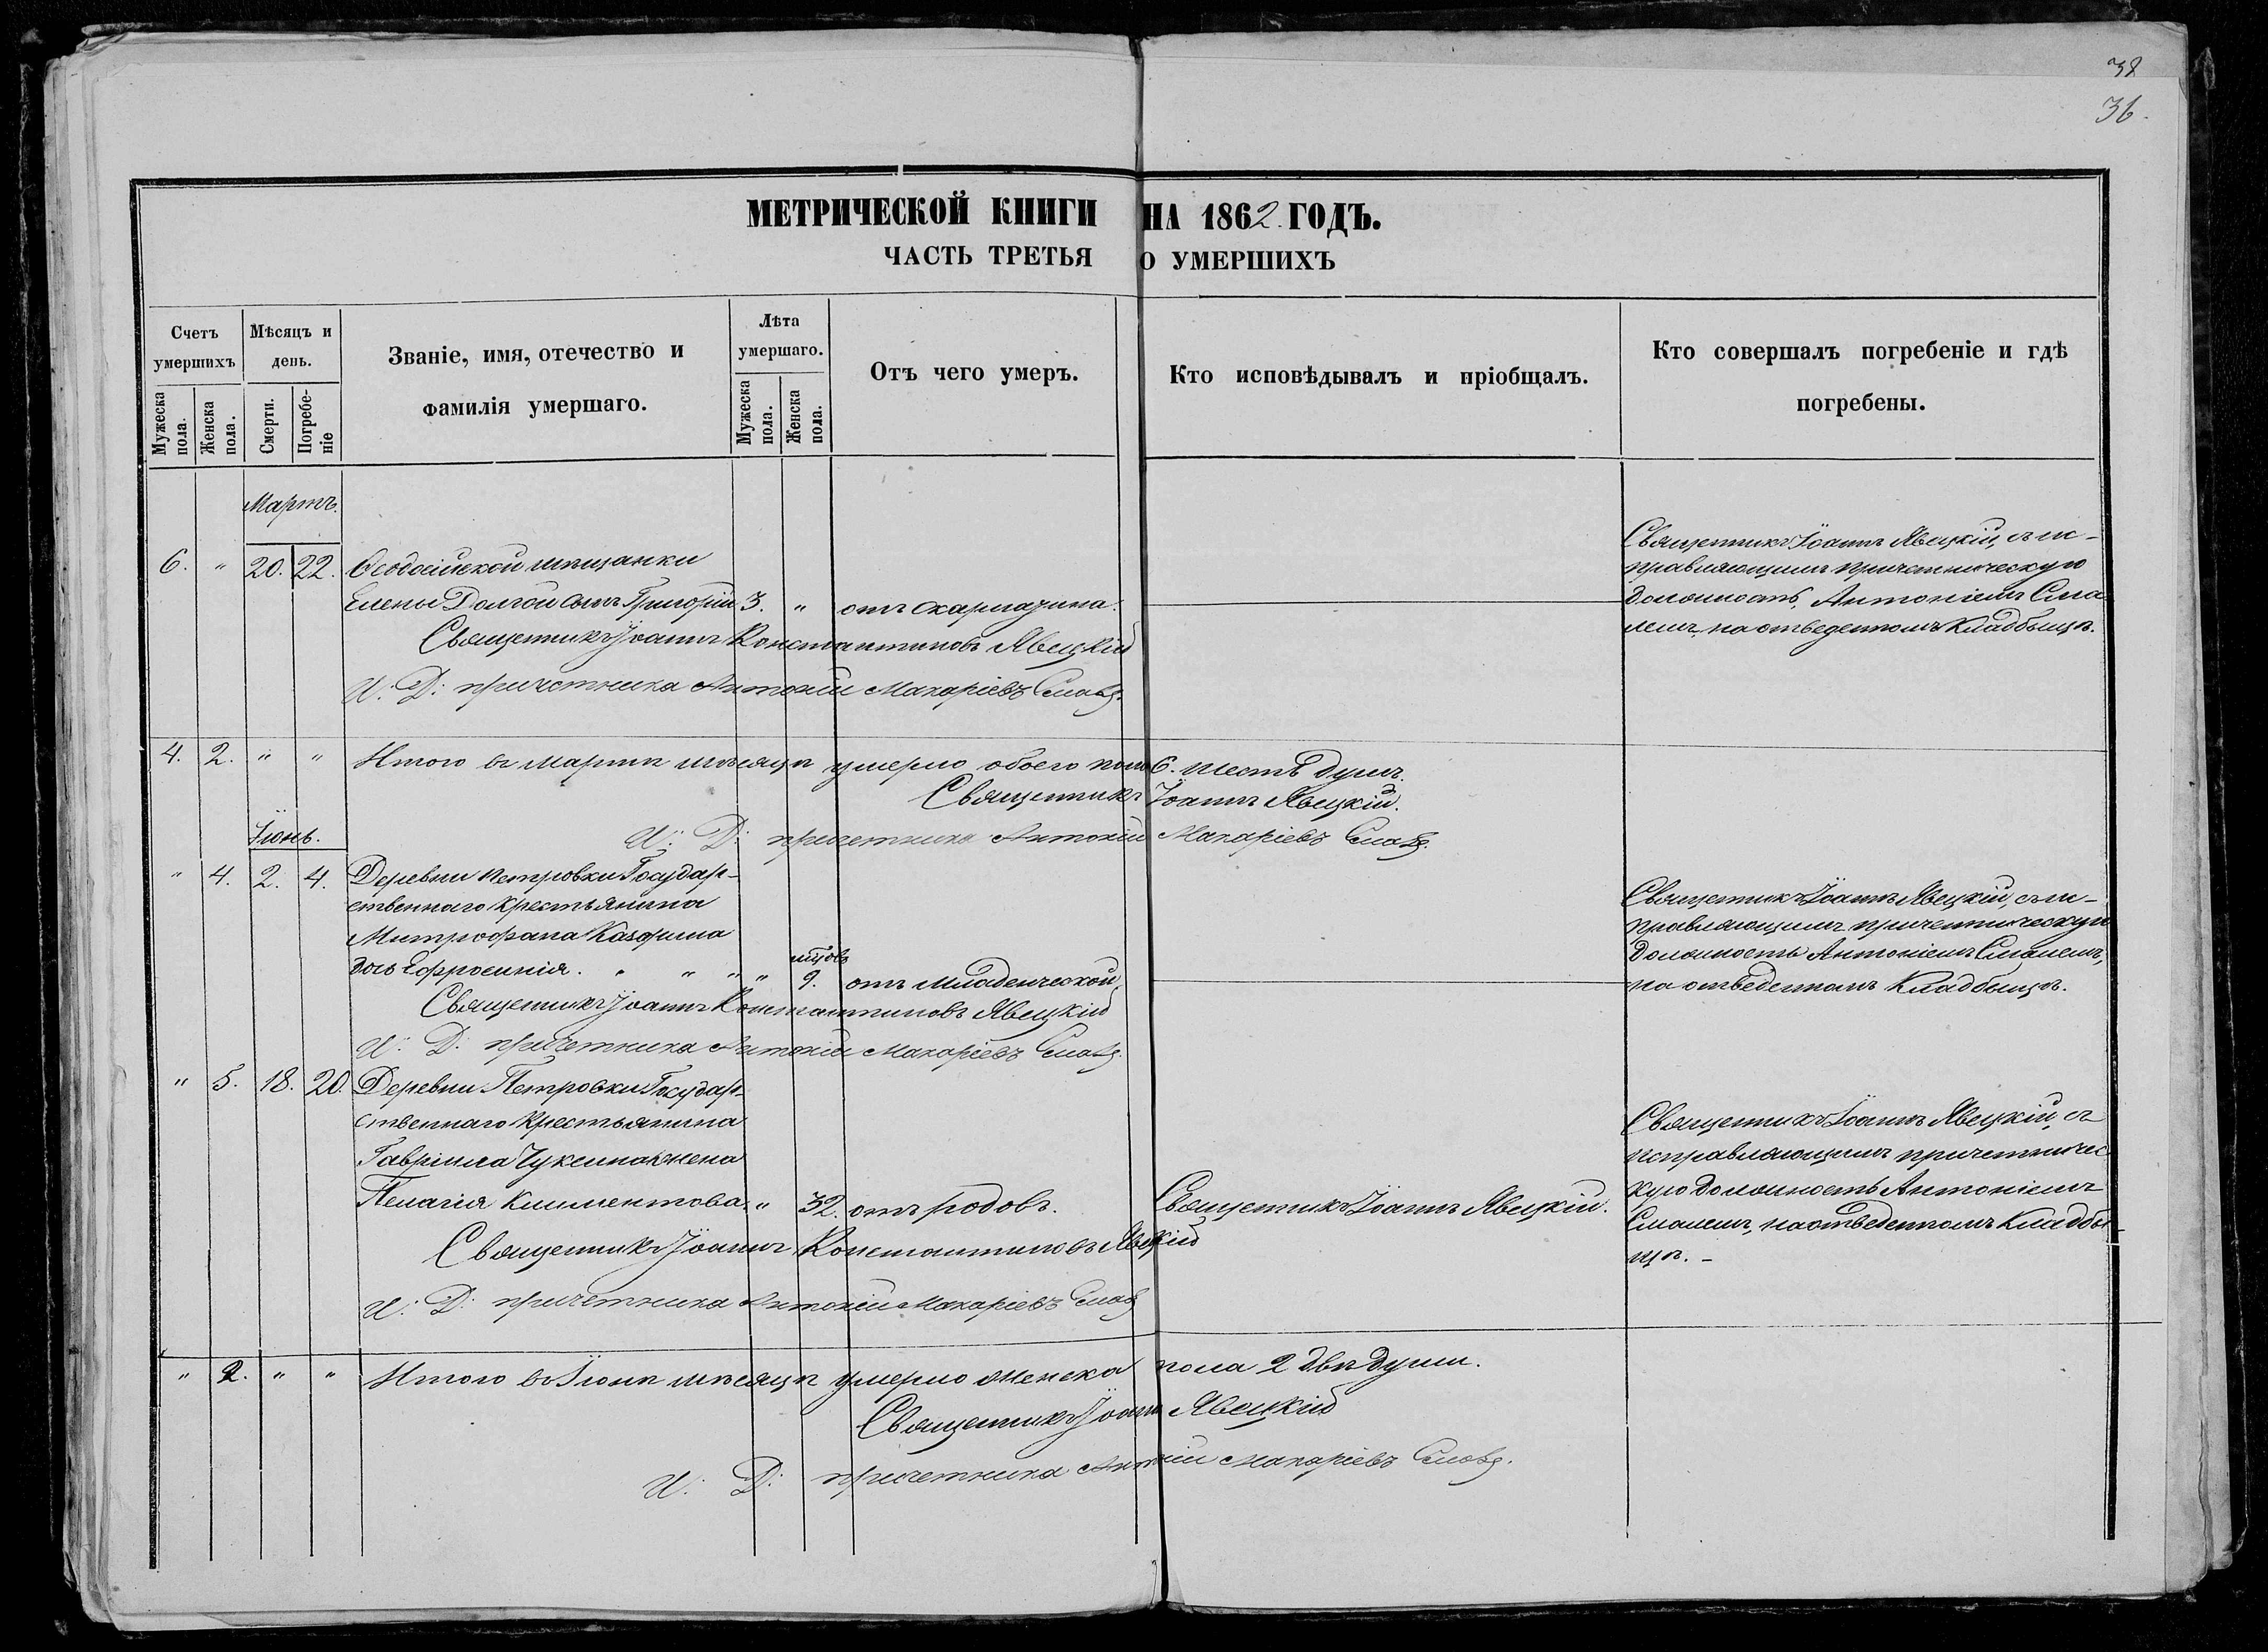 38
36.
МЕТРИЧЕСКОЙ КНИГИ НА 1862 ГОДЪ.
ЧАСТЬ ТРЕТЬЯ О УМЕРШИХЪ
Счетъ умершихъ
Мужеска пола.
Женска пола.
Мѣсяцъ и день.
Смерти.
Погребеніе
Званіе, имя, отечество и
фамилія умершаго.
Лѣта умершаго.
Мужеска пола.
Женска пола.
Отъ чего умеръ.
Кто исповѣдывалъ и пріобщалъ.
Кто совершалъ погребеніе и гдѣ
погребены.
Мартъ.
6. " 20. 22. Ѳеодосійской мѣщанки
Елены Долгой сынъ Григорій 3. " отъ скарлатина.
Священникъ Іоаннъ Явецкій, съ ис-
правляющимъ причетническую
должность, Антоніемъ Сма
лемъ, на отведенномъ кладбыщѣ.
Священникъ Іоаннъ Константиновъ Явецкій
И: Д: причетника Антоній Макаріевъ
4. 2. " " Итого въ мартѣ мѣсяцѣ умерло обоего пола 6. шесть душъ.
Священникъ Іоаннъ Явецкій.
И: Д: причетника Антоній Макаріевъ
Іюнь.
" 4. 2. 4. Деревни Петровки Государ-
ственнаго крестьянина
Митрофана
дочь Ефросинія. " " " " 9. отъ младенческой.
Священникъ Іоаннъ Явецкій, съ ис-
правляющимъ причетническую
должность Антоніемъ Смалемъ,
на отведенномъ кладбыщѣ.
Священникъ Іоаннъ Константиновъ Явецкій
И: Д: причетника Антоній Макаріевъ
" 5. 18. 20. Деревни Петровки Государ-
ственнаго крестьянина
Гавріила жена
Пелагія Климентова. " 32. отъ родовъ. Священникъ Іоаннъ Явецкій.
Священникъ Іоаннъ Явецкій, съ
исправляющимъ причетничес
кую должность Антоніемъ
Смалемъ, на отведенномъ кладбы-
щѣ. -
Священникъ Іоаннъ Константиновъ Явецкій
И: Д: причетника Антоній Макаріевъ
" 2. " " Итого въ Іюнѣ мѣсяцѣ умерло женска пола 2 двѣ души.
Священникъ Іоаннъ Явецкій
И: Д: причетника Антоній Макаріевъ